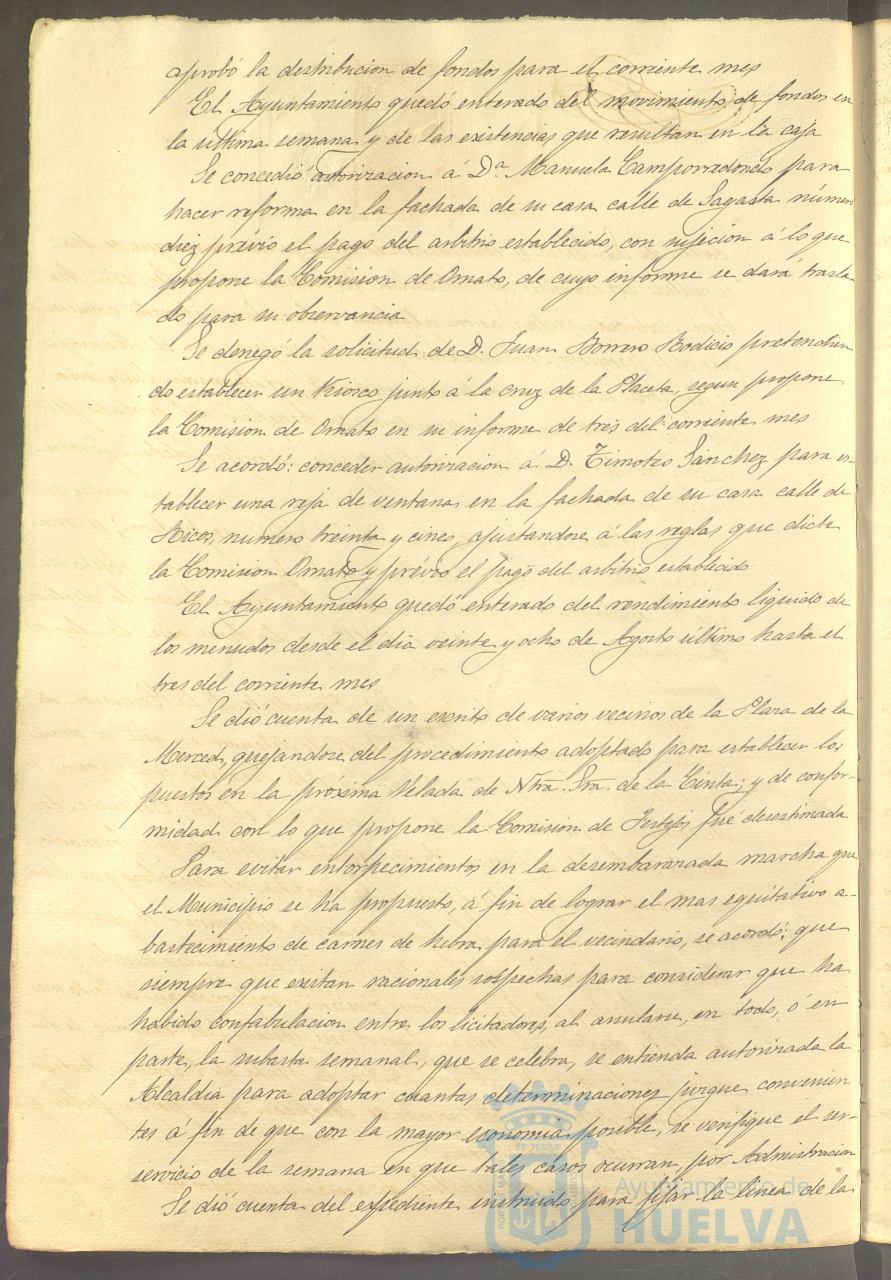 aprobó la distribucion de fondos para el corriente mes
El Ayuntamiento quedó enterado del movimiento de fondos en
la última semana y de las existencias que resultan en la caja
Se concedió autorizacion á D.ª Manuela Camporredondo para
hacer reforma en la fachada de su casa calle de Sagasta número
diez prévio el pago del arbitrio establecido, con sujecion á lo que
propone la Comision de Ornato, de cuyo informe se dará trasla
do para su observancia
Se denegó la solicitud de D. Juan Borrero Rodicio pretendien
do establecer un Kiosco junto á la cruz de la Placeta, segun propone
la Comision de Ornato en su informe de tres del corriente mes
Se acordó: conceder autorizacion á D. Timoteo Sanchez para es-
tablecer una reja de ventana en la fachada de su casa calle de
Ricos, numero treinta y cinco, ajustandose á las reglas que dicte
la Comision Ornato y prévio el pago del arbitrio establecido
El Ayuntamiento quedó enterado del rendimiento liquido de
los menudos desde el dia veinte y ocho de Agosto último hasta el
tres del corriente mes
Se dió cuenta de un escrito de varios vecinos de la Plaza de la
Merced, quejandose del procedimiento adoptado para establecer los
puestos en la próxima Velada de Ntra. Sra. de la Cinta; y de confor-
midad con lo que propone la Comision de Festejos fué desestimada
Para evitar entorpecimientos en la desembarazada marcha que
el Municipio se ha propuesto, á fin de lograr el mas equitativo a-
bastecimiento de carnes de hebra para el vecindario, se acordó: que
siempre que existan racionales sospechas para considerar que ha
habido confabulacion entre los licitadores, al anularse, en todo, ó en
parte, la subasta semanal, que se celebra, se entienda autorizada la
Alcaldia para adoptar cuantas determinaciones juzgue convenien
tes á fin de que con la mayor economia posible, se verifique el ser-
servicio de la semana en que tales casos ocurran, por Administracion
Se dió cuenta del expediente instruido para fijar la linea de la
Ayuntamiento de
HUELVA